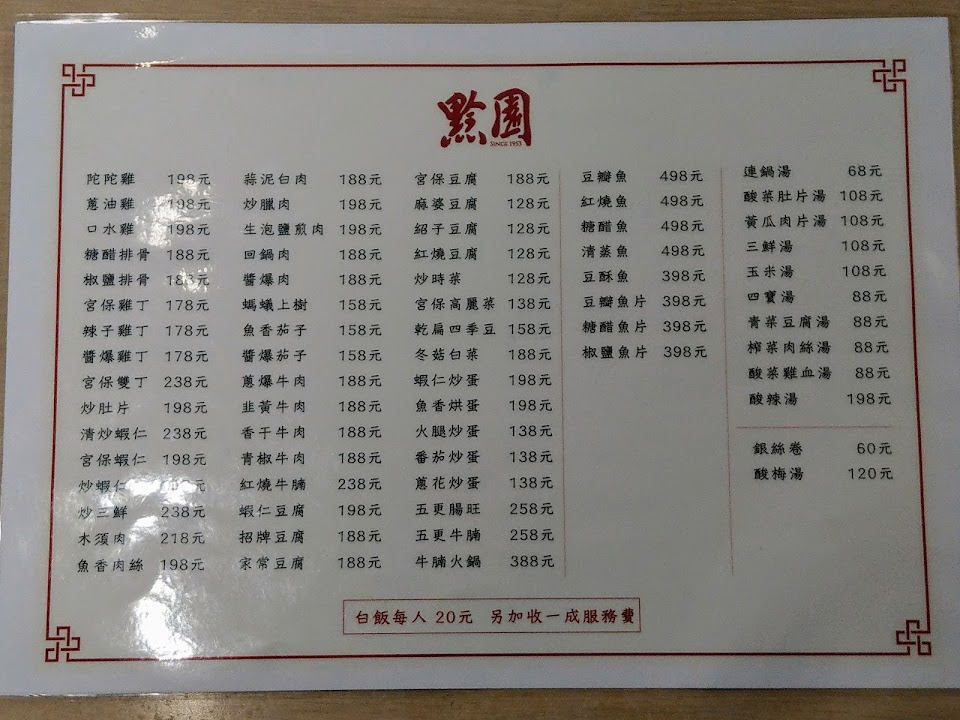 黔園
SINCE 1953
陀陀雞 198元
蔥油雞 198元
口水雞 198元
糖醋排骨 188元
椒鹽排骨 188元
宮保雞丁 178元
辣子雞丁 178元
醬爆雞丁 178元
宮保雙丁 238元
炒肚片 198元
清炒蝦仁 238元
宮保蝦仁 198元
炒蝦仁
炒三鮮 238元
木須肉 218元
魚香肉絲 198元
蒜泥白肉 188元
炒臘肉 198元
生泡鹽煎肉 198元
回鍋肉 188元
醬爆肉 188元
螞蟻上樹 158元
魚香茄子 158元
醬爆茄子 158元
蔥爆牛肉 188元
韭黃牛肉 188元
香干牛肉 188元
青椒牛肉 188元
紅燒牛腩 238元
蝦仁豆腐 198元
招牌豆腐 188元
家常豆腐 188元
宮保豆腐 188元
麻婆豆腐 128元
紹子豆腐 128元
紅燒豆腐 128元
炒時菜 128元
宮保高麗菜 138元
乾扁四季豆 158元
冬菇白菜 188元
蝦仁炒蛋 198元
魚香烘蛋 198元
火腿炒蛋 138元
番茄炒蛋 138元
蔥花炒蛋 138元
五更腸旺 258元
五更牛腩 258元
牛腩火鍋 388元
豆瓣魚 498元
紅燒魚 498元
糖醋魚 498元
清蒸魚 498元
豆酥魚 398元
豆瓣魚片 398元
糖醋魚片 398元
椒鹽魚片 398元
連鍋湯 68元
酸菜肚片湯 108元
黃瓜肉片湯 108元
三鮮湯 108元
玉米湯 108元
四寶湯 88元
青菜豆腐湯 88元
榨菜肉絲湯 88元
酸菜雞血湯 88元
酸辣湯 198元
銀絲卷 60元
酸梅湯 120元
白飯每人 20元 另加收一成服務費